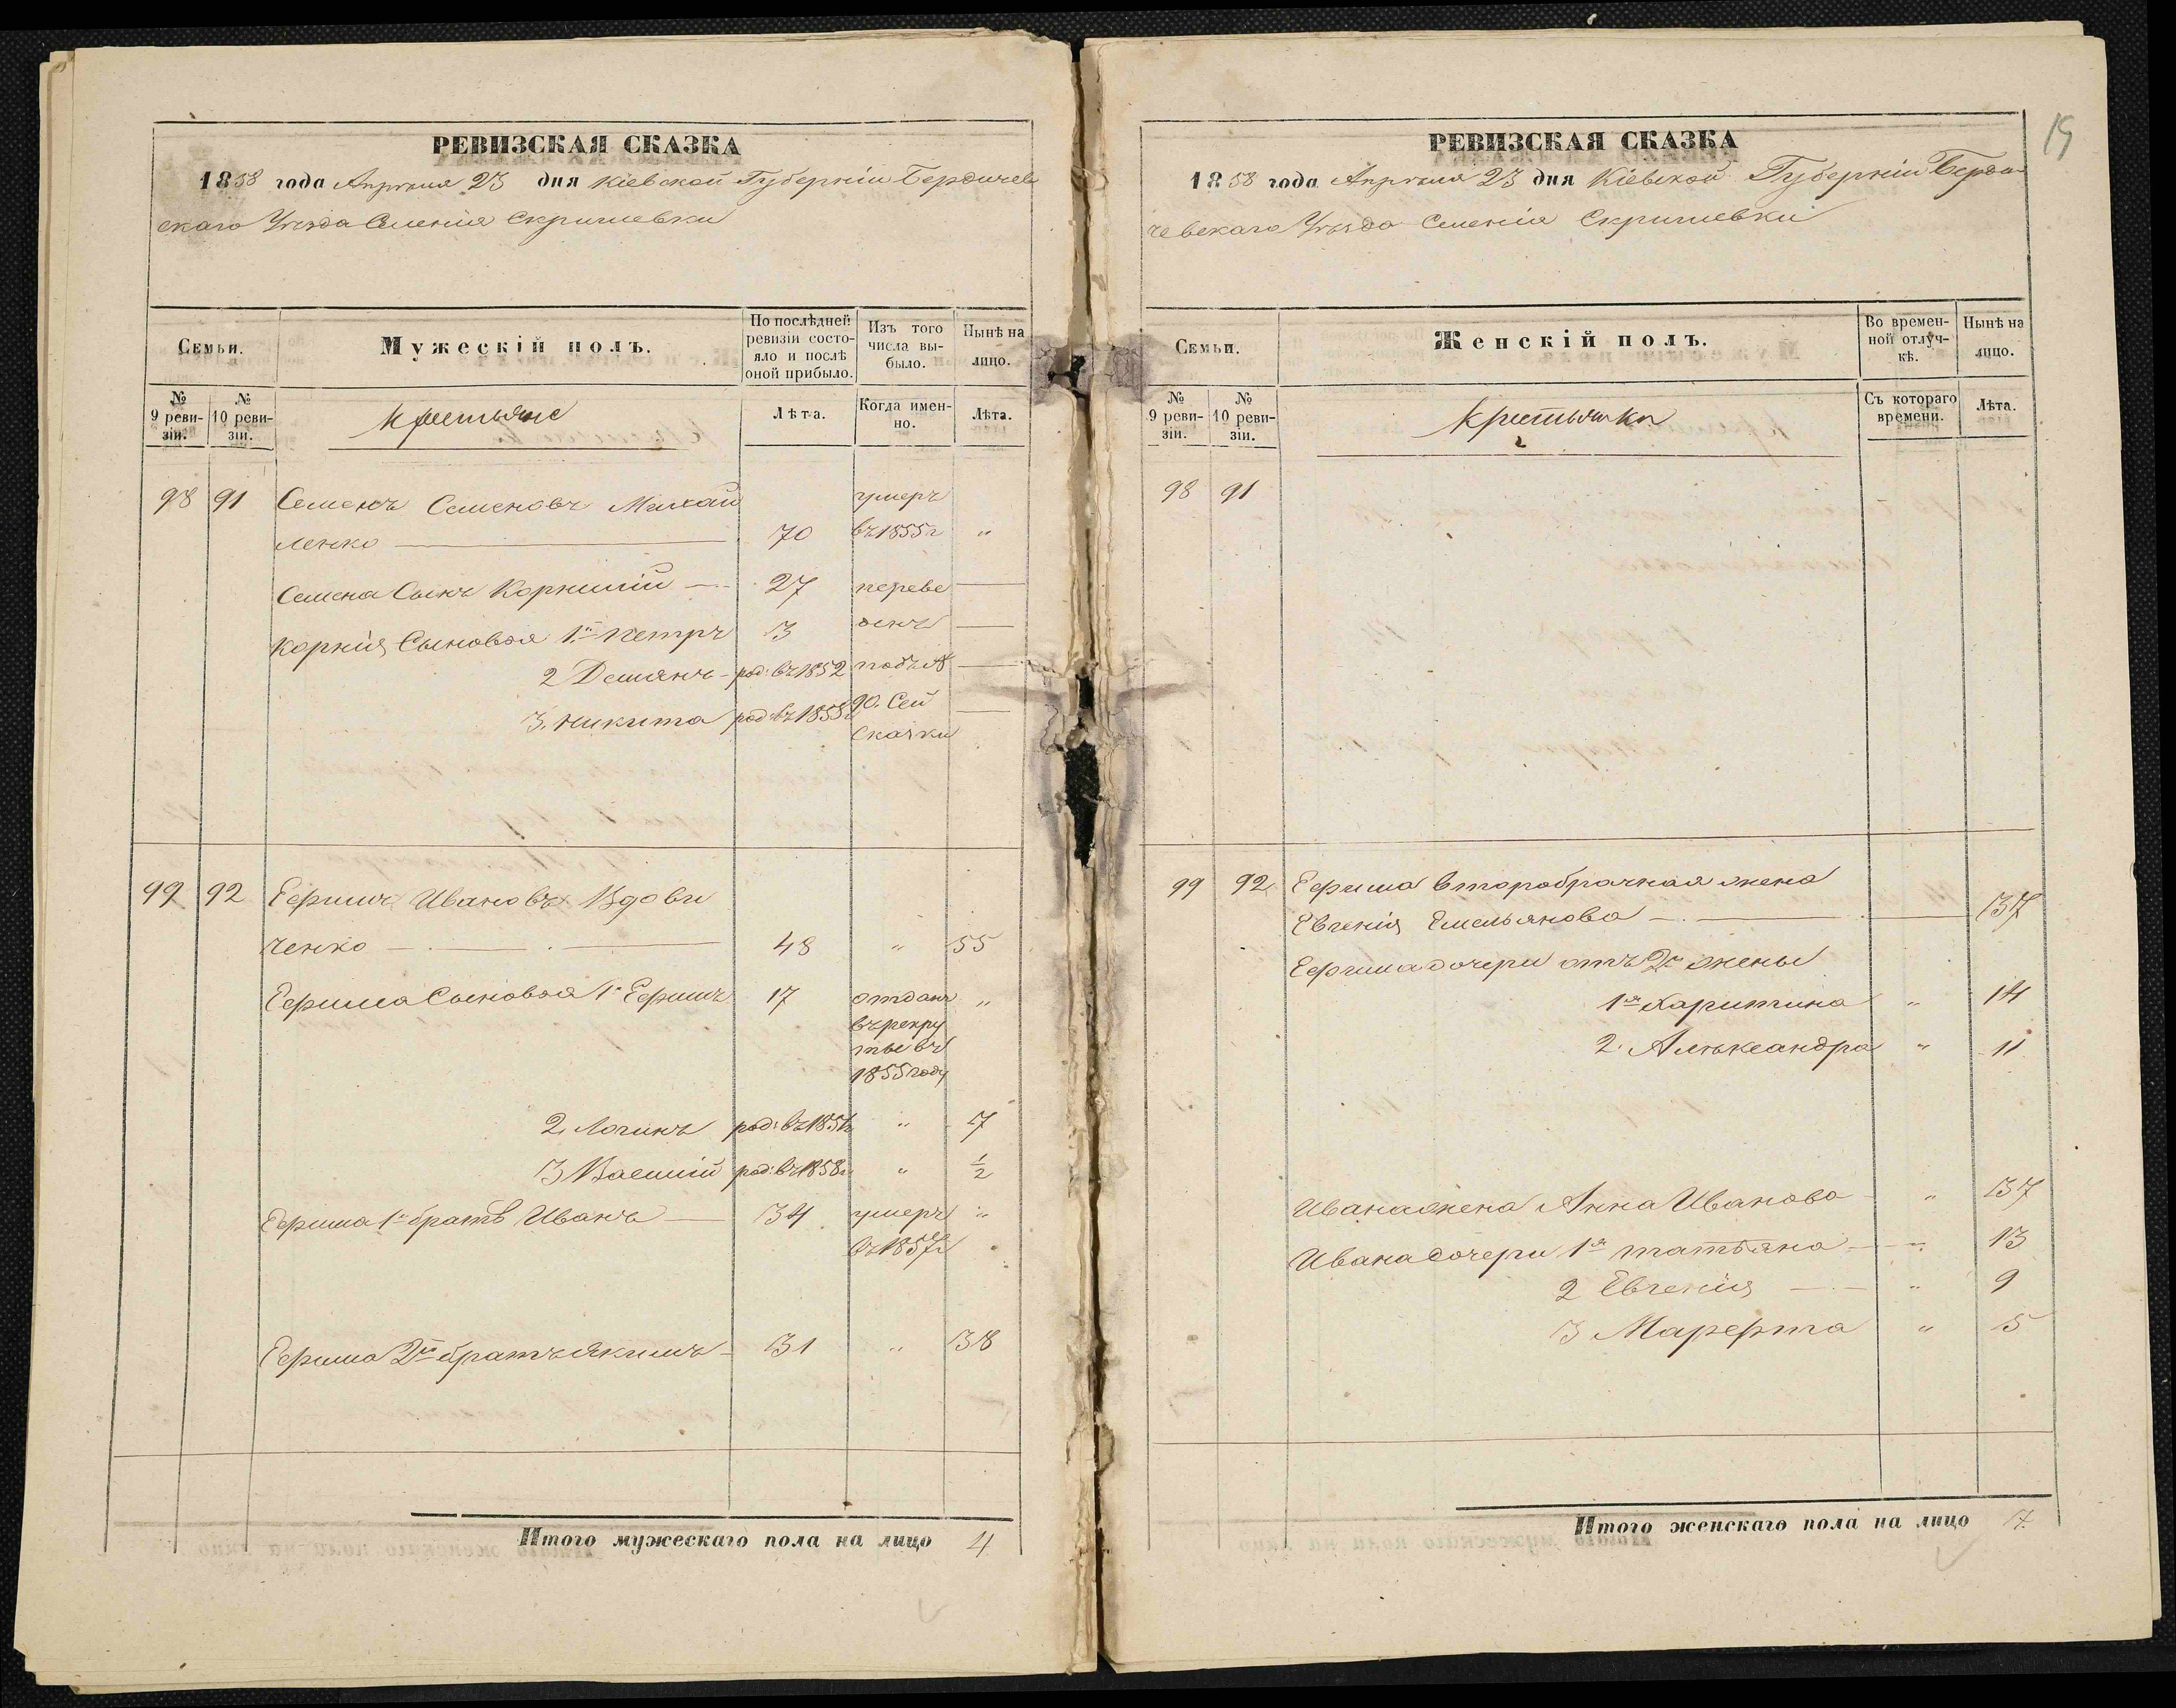 РЕВИЗСКАЯ СКАЗКА
1858 года Апрѣля 23 дня Кіевской Губерніи Бердичев
скаго Уѣзда Селенія Скришевки
Семьи.
Мужескій полъ.
По послѣдней ревизіи состояло и послѣ оной прибыло.
Изъ того числа выбыло.
Нынѣ на лицо.
№ 9 ревизіи.
№ 10 ревизіи.
Крестьяне
Лѣта.
Когда именно.
Лѣта.
98 91 Семенъ Семеновъ Михай умеръ
ленко 70 въ 1855 г „
Семена Сынъ Корнилій 27 переве
Корнія Сыновья 1й Петръ 3 денъ
2 Демянъ род: въ 1852 подъ №
3. Никита род: въ 1855 90. Сей
Скаски
99 92 Ефимъ Ивановъ Вдови
ченко 48 „ 55
Ефима Сыновья 1й Ефимъ 17 отданъ „
въ рекру
ты въ
1855 году
2. Логинъ род: въ 1851 „ 7
3 Василій род: въ 1858 г „ ½
Ефима 1й братъ Иванъ 34 умеръ „
въ 1857 г
Ефима 2й братъ Якимъ 31 „ 38
Итого мужескаго пола на лицо 4
19
РЕВИЗСКАЯ СКАЗКА
1858 года Апрѣля 23 дня Кіевской Губерніи Берди
чевскаго Уѣзда Селенія Скришевки
Семьи.
Женскій полъ.
Во временной отлучкѣ.
Нынѣ на лицо.
№ 9 ревизіи.
№ 10 ревизіи.
Крестьянки
Съ котораго времени.
Лѣта.
98 91
99 92 Ефима Второбрачная жена
Евгенія Емельянова 37
Ефима дочери отъ 2й жены
1я Харитина „ 14
2. Алѣксандра „ 11
Ивана жена Анна Иванова „ 37
Ивана дочери 1я татьяна „ 13
2 Евгенія „ 9
3 Марфта „ 5
Итого женскаго пола на лицо 7.